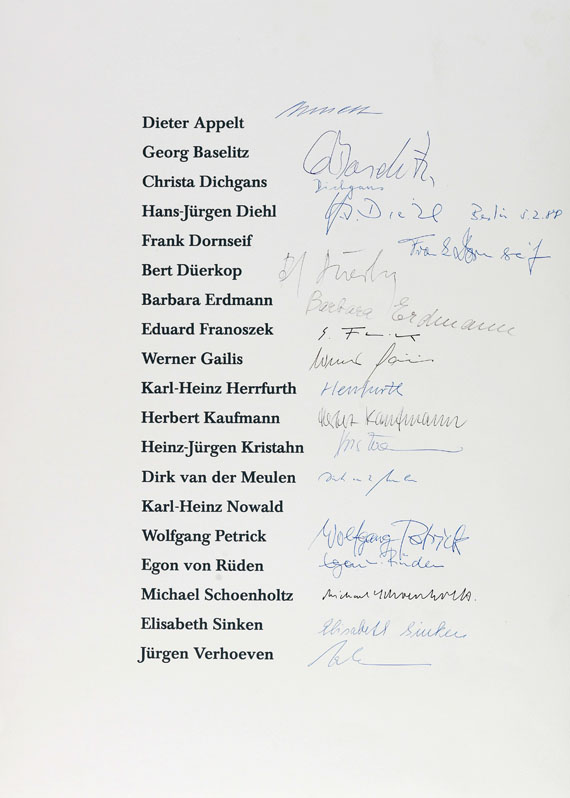 Dieter Appelt
Georg Baselitz
Baselitz
Christa Dichgans
Dichgans
Hans-Jürgen Diehl
H.J. Diehl Berlin 5.2.88
Frank Dornseif
Frank Dornseif
Bert Düerkop
Barbara Erdmann
Barbara Erdmann
Eduard Franoszek
Werner Gailis
Karl-Heinz Herrfurth
Herrfurth
Herbert Kaufmann
Herbert Kaufmann
Heinz-Jürgen Kristahn
Dirk van der Meulen
Karl-Heinz Nowald
Wolfgang Petrick
Wolfgang Petrick
Egon von Rüden
Egon v. Rüden
Michael Schoenholtz
Michael Schoenholtz.
Elisabeth Sinken
Elisabeth Sinken
Jürgen Verhoeven